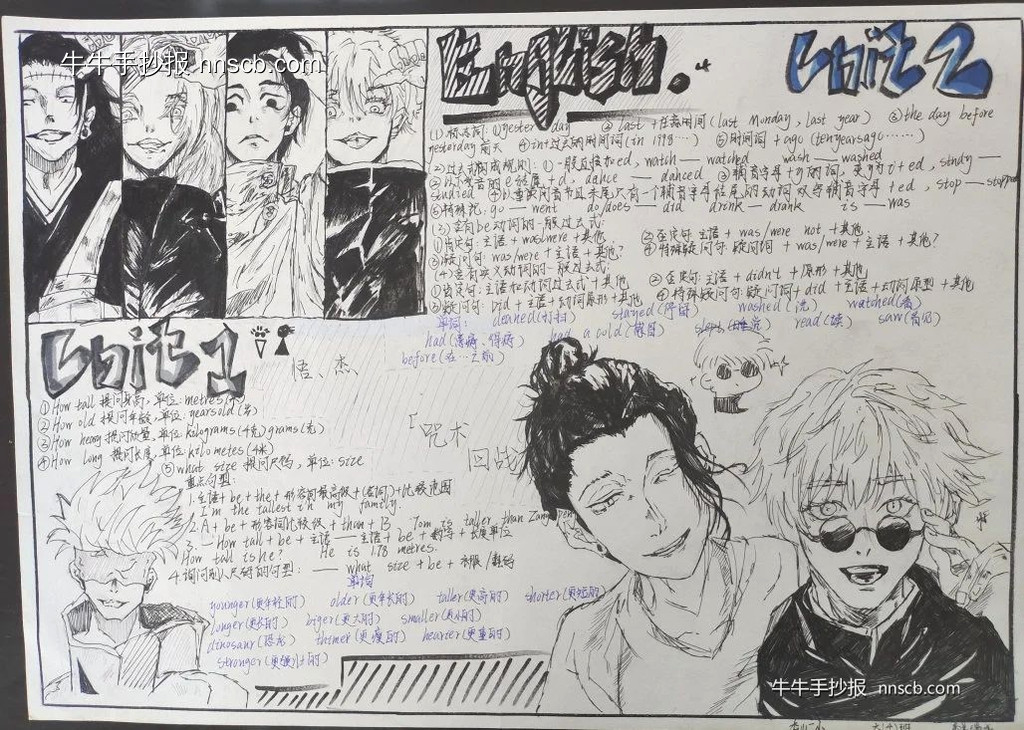 牛牛手抄报 nnscb.com
English.
Unit 2
(1) 标志词: ① yesterday ② last + 任意时间 (last Monday, last year) ③ the day before
yesterday 前天 ④ in + 过去的时间词 (in 1998…) ⑤ 时间词 + ago (ten years ago……)
(2) 过去式构成规则: ① 一般直接加 ed, watch — watched wash — washed
② 以不发音的e结尾 + d, dance — danced ③ 辅音字母 + y 的动词, 变y为i + ed, study —
studied ④ 以重读闭音节且末尾只有一个辅音字母结尾的动词 双写字母 + ed, stop — stopped
⑤ 特殊记: go — went do/does — did drink — drank is — was
(3) 含有be动词的一般过去式:
① 肯定句: 主语 + was/were + 其他 ② 否定句: 主语 + was/were not + 其他.
③ 疑问句: was/were + 主语 + 其他? ④ 特殊疑问句: 疑问词 + was/were + 主语 + 其他?
(4) 含有实义动词的一般过去式:
① 肯定句: 主语 + 动词过去式 + 其他 ② 否定句: 主语 + didn't + 原形 + 其他
③ 疑问句: Did + 主语 + 动词原形 + 其他 ④ 特殊疑问句: 疑问词 + did + 主语 + 动词原型 + 其他
单词: cleaned (打扫) stayed (停留) washed (洗) watched (看)
had (患病、得病) had a cold (感冒) slept (睡觉) read (读) saw (看见)
before (在…之前)
Unit 1
悟、杰
① How tall 提问身高, 单位: metres (米)
② How old 提问年龄, 单位: years old (岁)
③ How heavy 提问体重, 单位: kilograms (千克) grams (克)
④ How long 提问长度, 单位: kilometes (千米)
⑤ what size 提问尺码, 单位: size
重点句型:
1. 主语 + be + the + 形容词最高级 + (名词) + 比较范围
I'm the tallest in my family.
2. A + be + 形容词比较级 + than + B Tom is taller than Zhang Peng
3. — How tall + be + 主语 — 主语 + be + 数字 + 长度单位
How tall is he? He is 1.78 metres.
4. 询问别人尺码的句型: — what size + be + 衣服/鞋子
单词
younger (更年轻的) older (更年长的) taller (更高的) shorter (更短的)
longer (更长的) biger (更大的) smaller (更小的)
dinosaur (恐龙) thinner (更瘦的) heavier (更重的)
stronger (更强壮的)
「咒术
回战
牛牛手抄报 nnscb.com
六(4)班